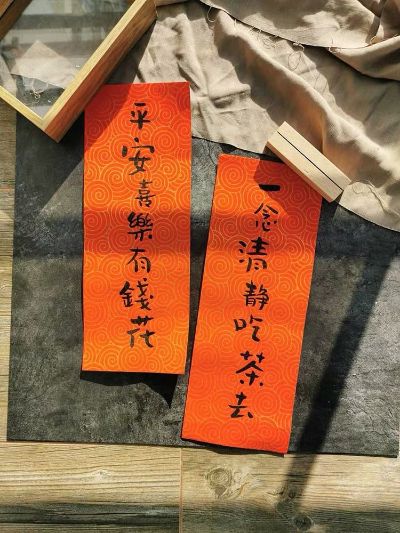 一念清靜吃茶去
平安喜樂有錢花